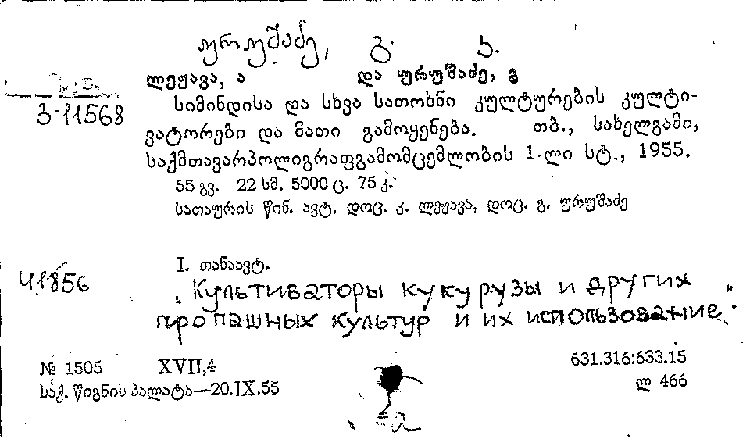 ურუშაძე, გ.
ლეჟავა, ა და ურუშაძე, გ
3-11568
სიმინდისა და სხვა სათოხნი კულტურების კულტი-
ვატორები და მათი გამოყენება. თბ., სახელგამი,
საქმთავარპოლიგრაფგამომცემლობის 1-ლი სტ., 1955.
55 გვ. 22 სმ. 5000 ც. 75 კ.
სათაურის წინ. ავტ. დოც. კ. ლეჟავა, დოც. გ. ურუშაძე
I. თანაავტ.
41856
„Культиваторы кукурузы и других
пропашных культур и их использование."
№ 1505 XVII,4 631.316:633.15
საქ. წიგნის პალატა—20.IX.55 ლ 466